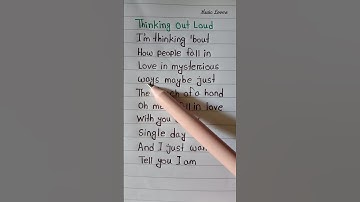 Thinking Out Loud
I'm thinking 'bout
How people fall in
Love in mysterious
ways maybe just
The of a hand
Oh in love
With you
Single day
And I just
Tell you I am